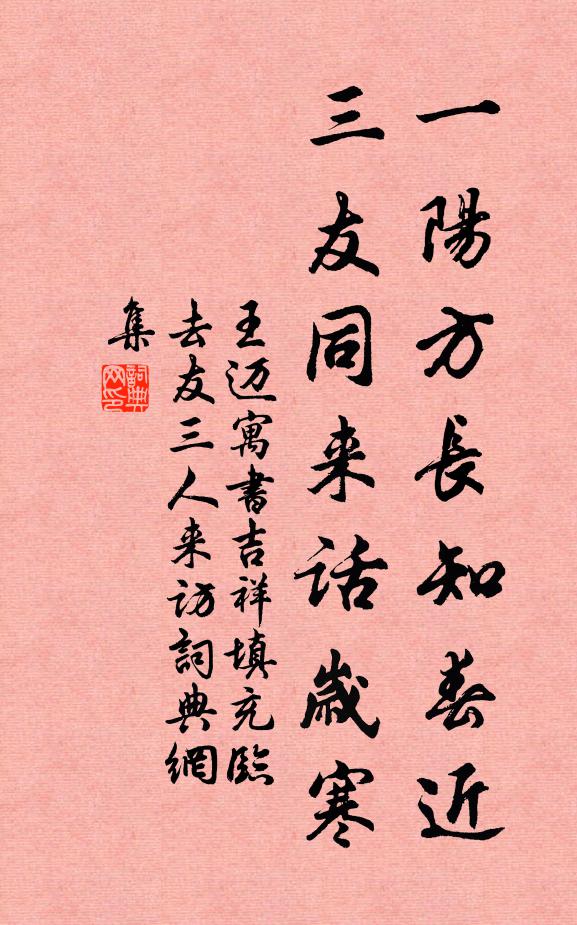 一陽方長知春近
三友同来话歲寒
王迈寓書吉祥填充臨
去友三人来访詞典網
集
詞典
网印